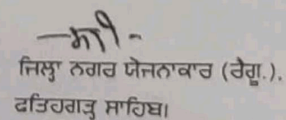 ਜਿਲ੍ਹਾ ਨਗਰ ਯੋਜਨਾਕਾਰ (ਰੈਗੂ.),
ਫਤਿਹਗੜ੍ਹ ਸਾਹਿਬ।